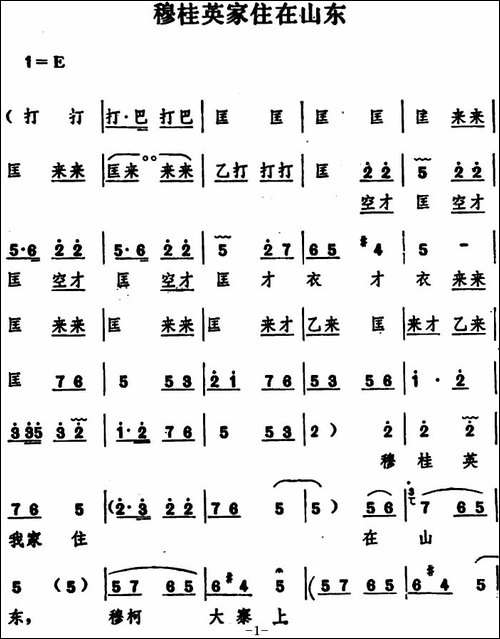 穆桂英家住在山东
1=E
(打 打 | 打·巴 打巴 | 匡 匡 | 匡 匡 | 匡 来来 |
匡 来来 | 匡来 来来 | 乙打 打打 | 匡 2 2 | 5 2 2 |
空才 匡 空才
5·6 2 2 | 5·6 2 2 | 5 2 7 | 6 5 #4 | 5 - |
匡 空才 匡 空才 匡 才 衣 才 衣 来来
匡 来来 | 匡 来来 | 匡 来才 | 乙来 匡 | 来才 乙来 |
匡 7 6 | 5 5 3 | 2 1 7 6 | 5 3 5 6 | 1 · 2 |
3 3 5 3 2 | 1·2 7 6 | 5 5 3 | 2 ) 2 | 2 2 |
穆 桂 英
7 6 5 | (2·3 2 2 | 7 6 5 | 5 ) 5 6 | 3 7 6 5 |
我家 住 在 山
5 ( 5 ) | 5 7 6 5 | 6 #4 5 | ( 5 7 6 5 | 6 #4 5 |
东, 穆柯 大寨上
-1-